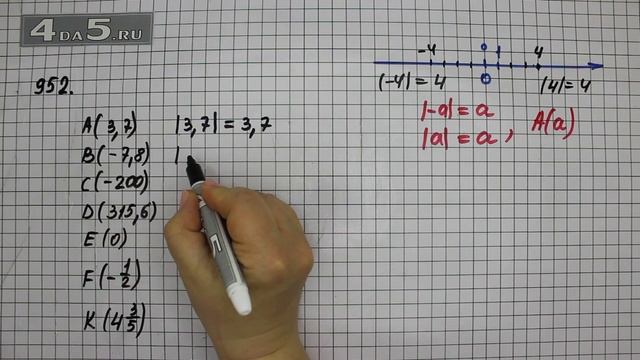 4DA5.RU
952.
A(3,7) |3,7| = 3,7
B(-7,8) |
C(-200)
D(315,6)
E(0)
F(-1/2)
K(4 3/5)
-4 0 1 4
|-4| = 4 0 |4| = 4
|-a| = a
|a| = a, A(a)